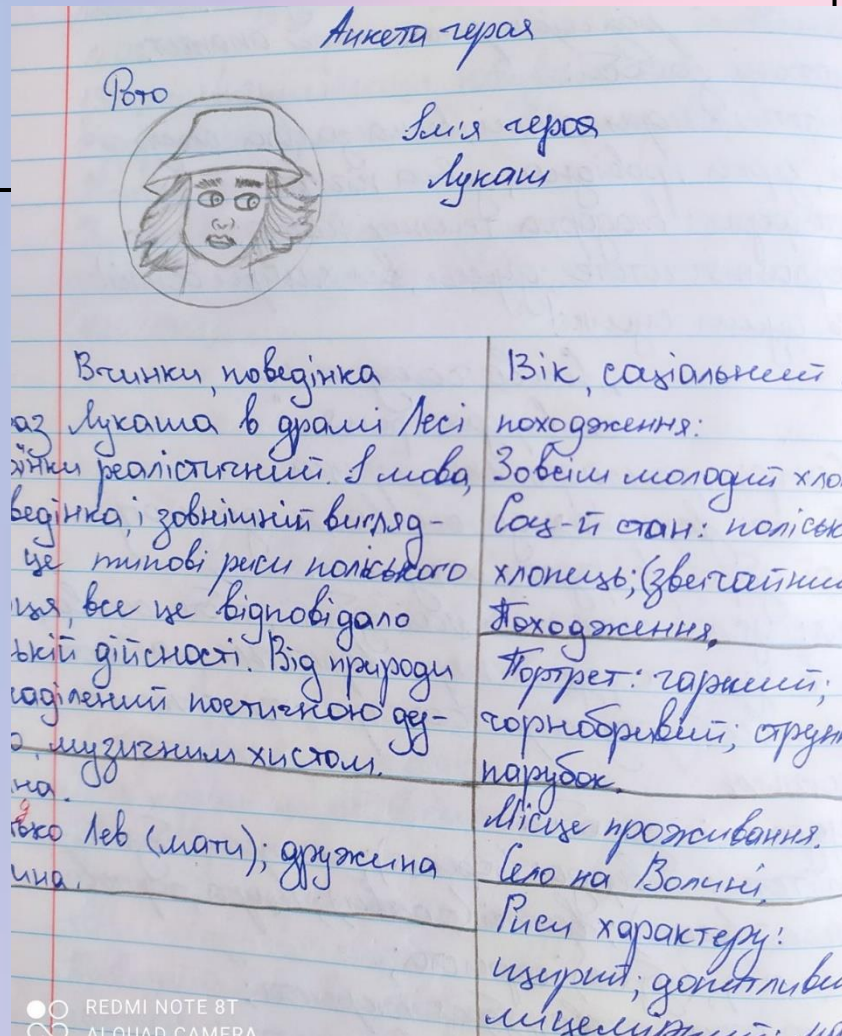 Анкета героя
Фото
Імʼя героя
Лукаш
Вчинки, поведінка
аз Лукаша в драмі Лесі
їнки реалістичний. І мова,
ведінка, і зовнішній вигляд-
це типові риси поліського
ця, все це відповідало
ькій дійсності. Від природи
наділений поетичною ду-
ю, музичним хистом.
на.
ько Лев (мати); дружина
ина.
Вік, соціальний
походження:
Зовсім молодий хло
Соц-й стан: поліськ
хлопець; (звичайний
Походження.
Портрет: гарний;
чорнобривий; струн
парубок.
Місце проживання.
Село на Волині.
Риси характеру:
щирий; допитливи
REDMI NOTE 8T
AI QUAD CAMERA